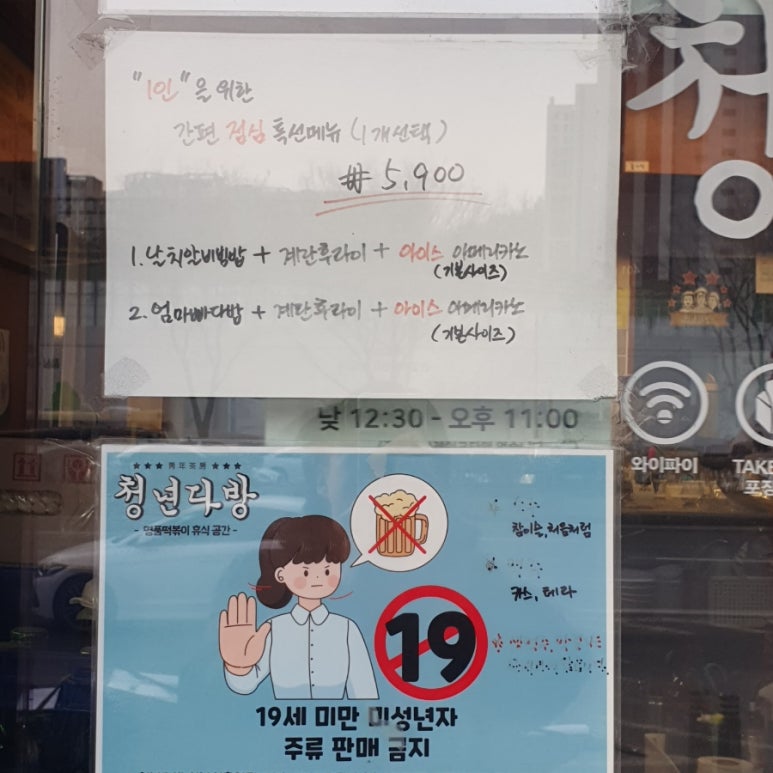 "1인"을 위한
간편 점심 특선메뉴 (1개선택)
₩ 5,900
1. 날치알비빔밥 + 계란후라이 + 아이스 아메리카노
(기본사이즈)
2. 엄마빠다밥 + 계란후라이 + 아이스 아메리카노
(기본사이즈)
청
낮 12:30 - 오후 11:00
와이파이
TAKE
포장
靑年茶房
청년다방
- 명품떡볶이 휴식 공간 -
참이슬, 처음처럼
카스, 테라
19
19세 미만 미성년자
주류 판매 금지